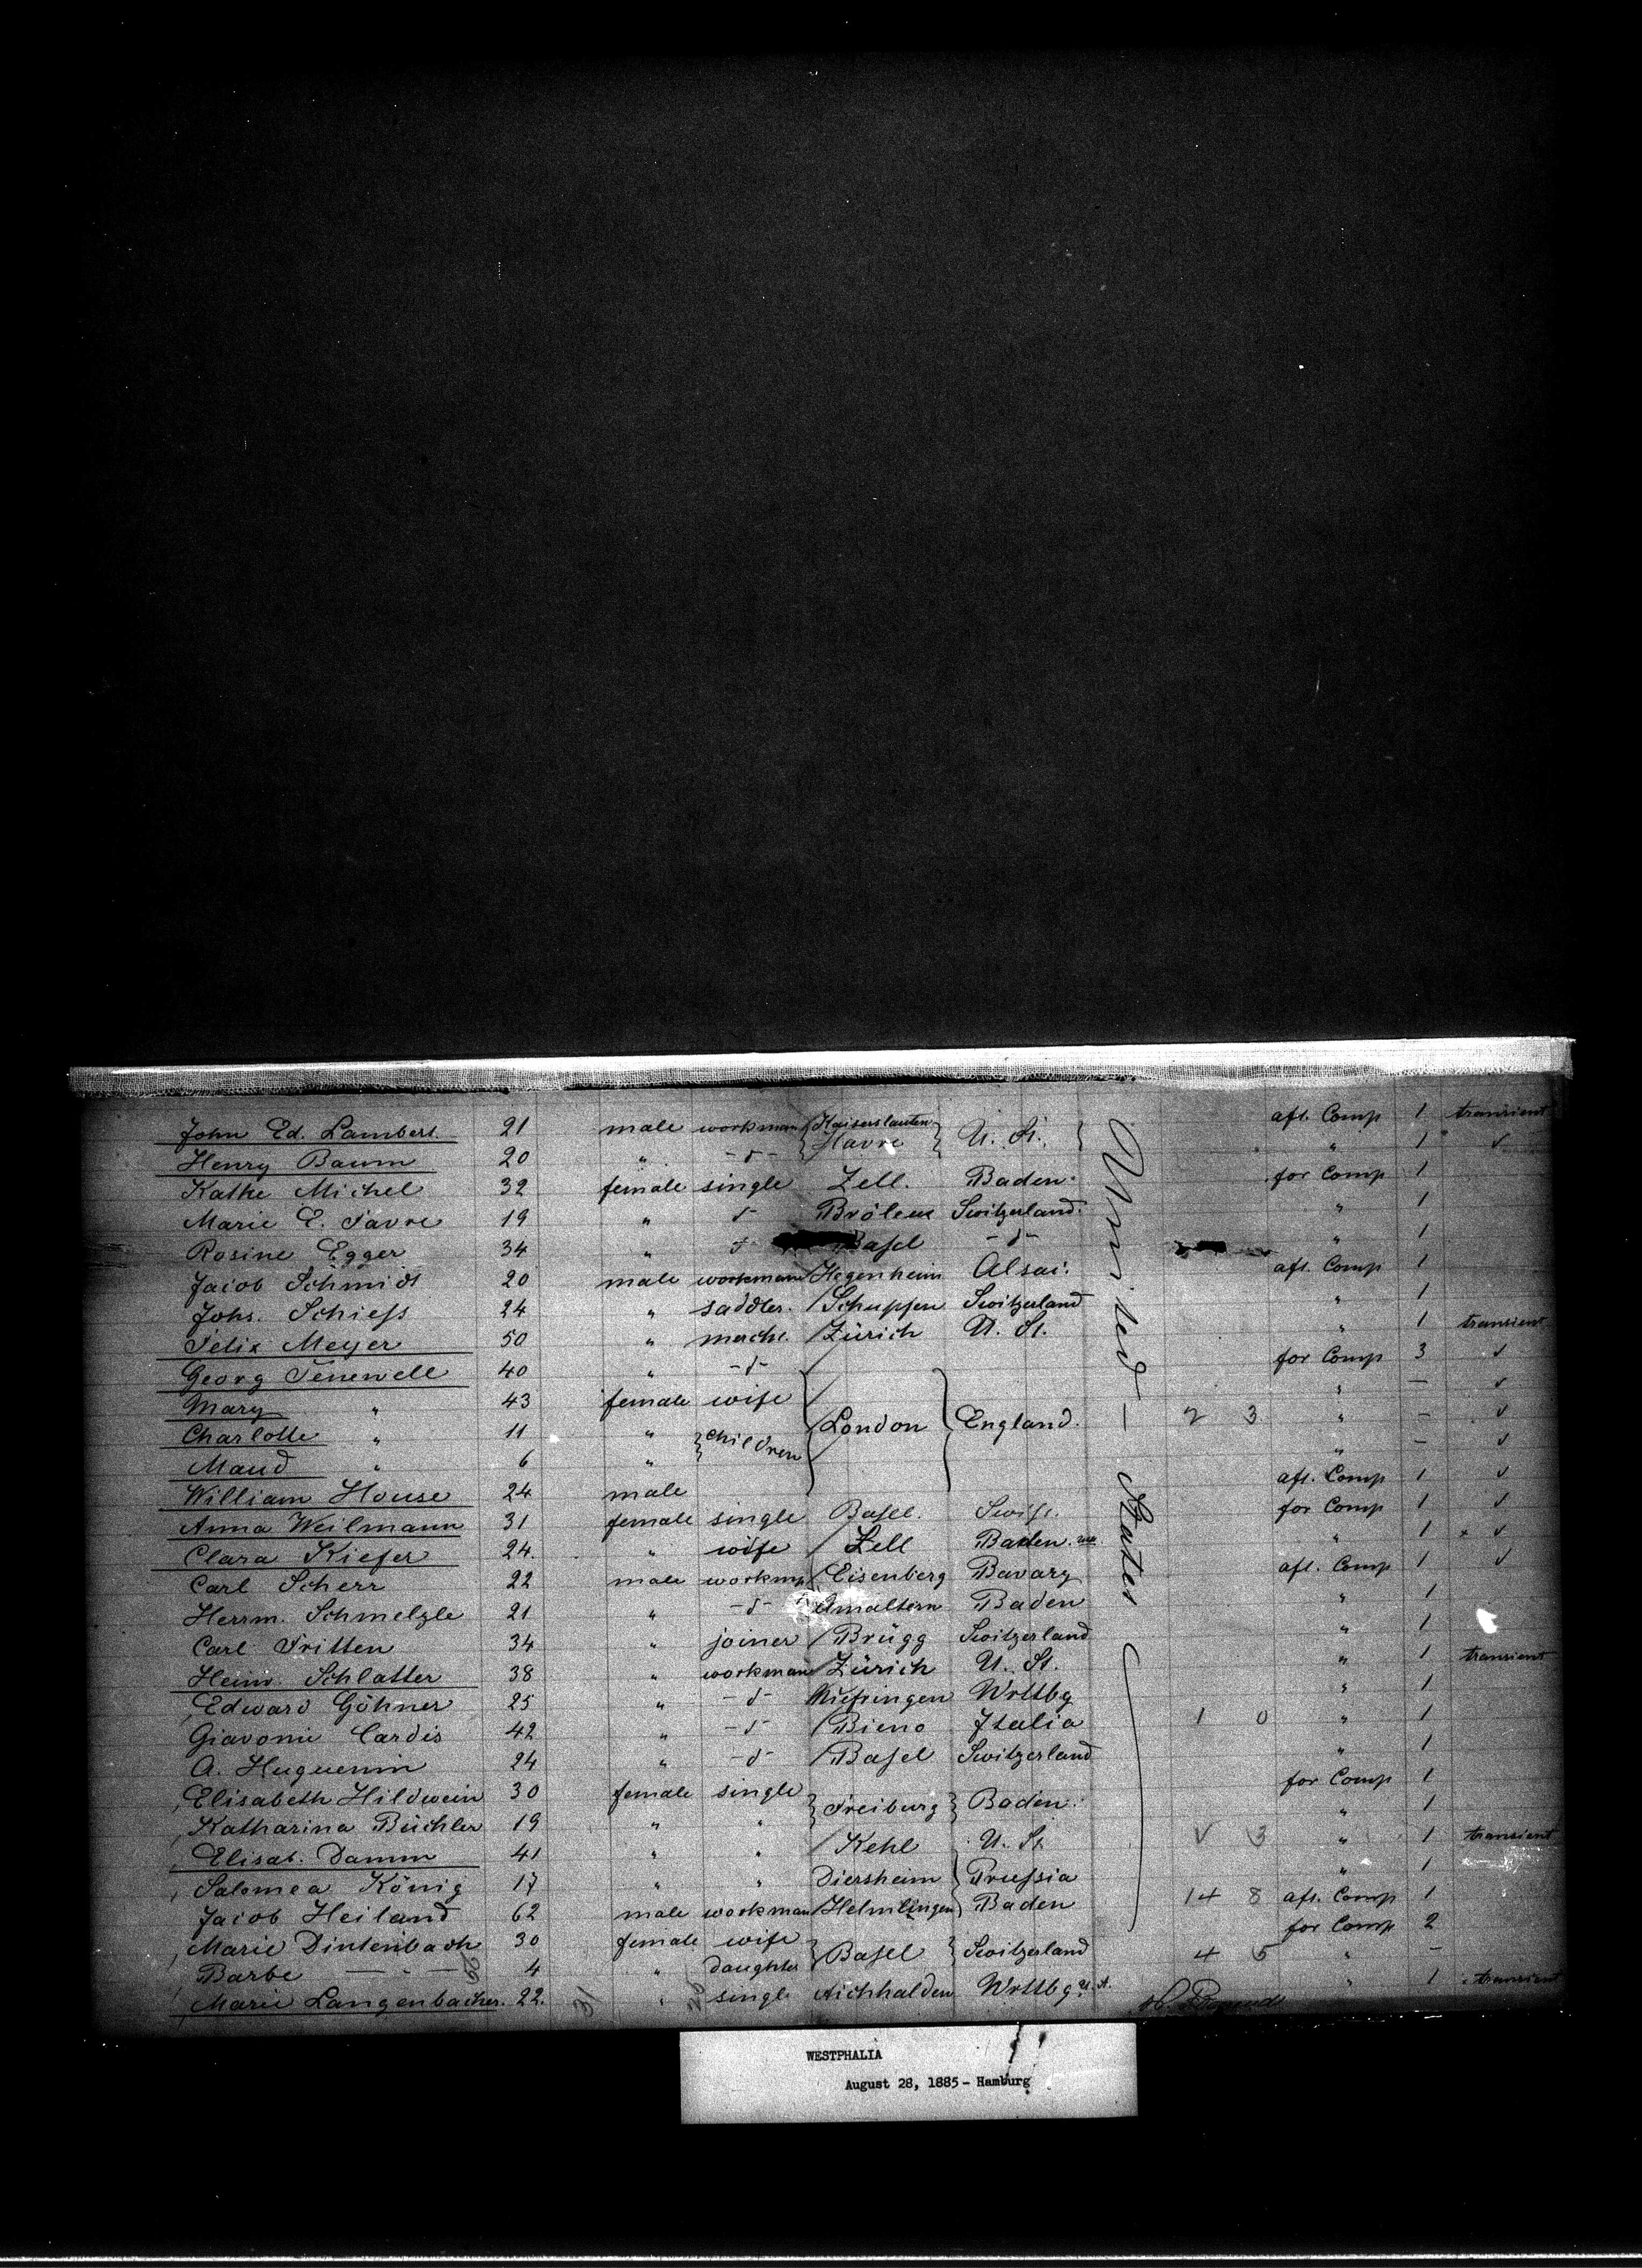 John Ed. Lambert. 21 male workman Kaiserslautern U. St. aft. Comp 1 transient
Henry Baum 20 " -d- Havre " 1 ✓
Kathe Michel 32 female single Zell. Baden. for Comp 1
Marie E. Favre 19 " d- Switzerland. " 1
Rosine Egger 34 " d- Basel -d- " 1
Jacob Schmidt 20 male workman Hegenheim Alsac. aft. Comp 1
Johs. Schiess 24 " saddler. Schupfen Switzerland " 1
Felix Meyer 50 " mercht. Zürich U. St. " 1 transient
Georg Fenewell 40 " -d- for Comp 3 ✓
Mary " 43 female wife London England. " — ✓
Charlotte " 11 " children 2 3 " — ✓
Maud " 6 " " — ✓
William House 24 male aft. Comp 1 ✓
Anna Weilmann 31 female single Basel. for Comp 1 ✓
Clara Kiefer 24. " wife Zell Baden. " 1 ✓
Carl Scherr 22 male Eisenberg Bavary aft. Comp 1 ✓
Herrm. Schmelzle 21 " -d- Baden " 1
Carl Fritten 34 " joiner Brügg Switzerland " 1
Heinr. Schlatter 38 " workman Zürich U. St. " 1 transient
Edward Göhner 25 " -d- Wrttbg " 1
Giavonni Cardis 42 " -d- Bieno Italia 1 0 " 1
A. Huguenin 24 " -d- Basel Switzerland " 1
Elisabeth Hildwein 30 female single Freiburg Baden. for Comp 1
Katharina Büchler 19 " " " 1
Elisab. Damm 41 " " Kehl U. St. 3 " 1 transient
Salomea König 17 " " Diersheim Prussia " 1
Jacob Heiland 62 male workman Helmlingen Baden 14 8 aft. Comp 1
Marie Dintenbach 30 female wife Basel Switzerland for Comp 2
Barbe — " — 4 " daughter 4 5 " —
Marie Langenbacher. 22. " single Aichhalden Wrttbg. U. St. " 1 transient
United — States
31
WESTPHALIA
August 28, 1885 - Hamburg